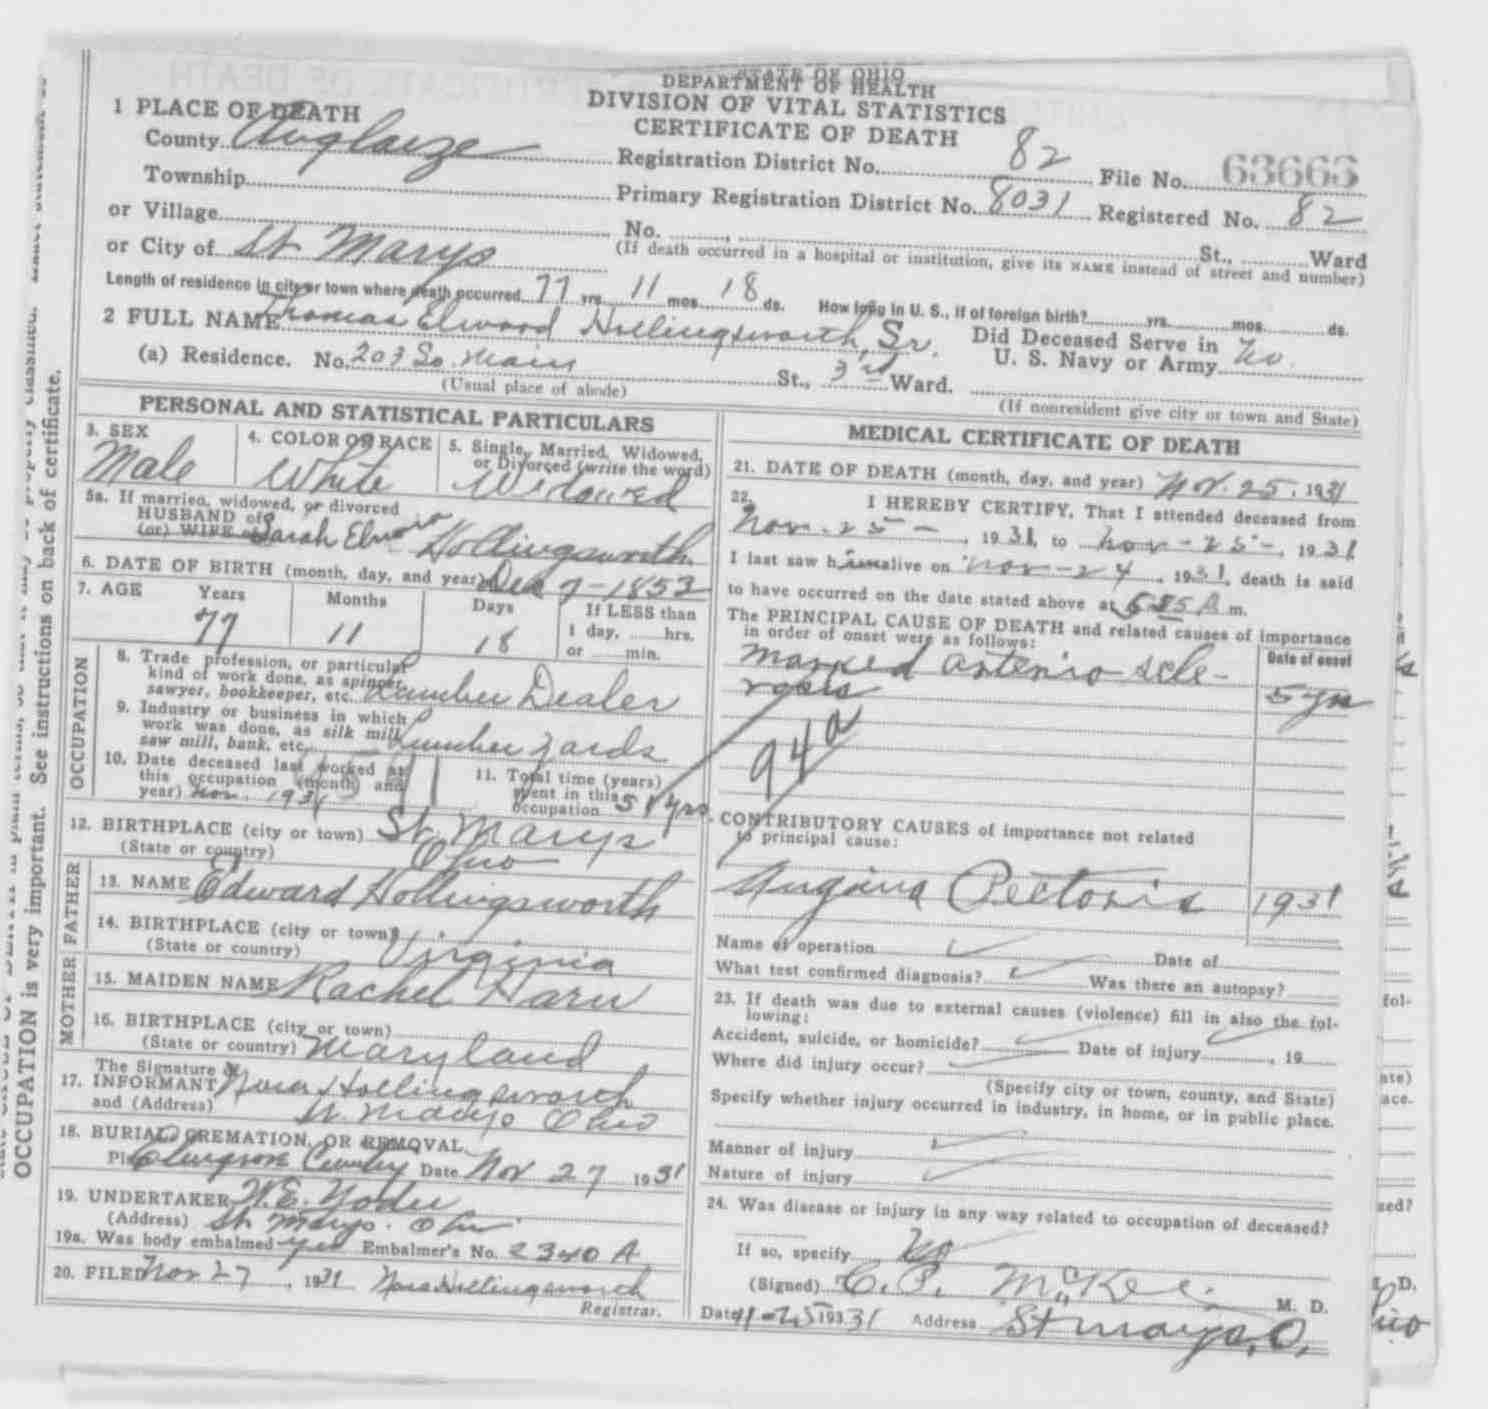 STATE OF OHIO
DEPARTMENT OF HEALTH
DIVISION OF VITAL STATISTICS
CERTIFICATE OF DEATH
1 PLACE OF DEATH
County Auglaize Registration District No. 82 File No. 63663
Township Primary Registration District No. 8031 Registered No. 82
or Village No. , St., Ward
or City of St Marys (If death occurred in a hospital or institution, give its NAME instead of street and number)
Length of residence in city or town where death occurred 77 yrs. 11 mos. 18 ds. How long in U. S., if of foreign birth? yrs. mos. ds.
2 FULL NAME Thomas Elwood Hollingsworth, Sr. Did Deceased Serve in U. S. Navy or Army No.
(a) Residence. No. 203 So. Main St., 3rd Ward.
(Usual place of abode) (If nonresident give city or town and State)
PERSONAL AND STATISTICAL PARTICULARS
3. SEX Male
4. COLOR OR RACE White
5. Single, Married, Widowed, or Divorced (write the word) Widowed
5a. If married, widowed, or divorced
HUSBAND of
(or) WIFE of Sarah Hollingsworth
6. DATE OF BIRTH (month, day, and year) Dec 7-1853
7. AGE Years Months Days If LESS than
77 11 18 1 day, hrs.
or min.
OCCUPATION
8. Trade, profession, or particular
kind of work done, as spinner,
sawyer, bookkeeper, etc. Lumber Dealer
9. Industry or business in which
work was done, as silk mill,
saw mill, bank, etc. Lumber yards
10. Date deceased last worked at
this occupation (month and
year) Nov. 1931
11. Total time (years)
spent in this
occupation 51 yrs.
12. BIRTHPLACE (city or town) St. Marys
(State or country) Ohio
FATHER
13. NAME Edward Hollingsworth
14. BIRTHPLACE (city or town)
(State or country) Virginia
MOTHER
15. MAIDEN NAME Rachel
16. BIRTHPLACE (city or town)
(State or country) Maryland
The Signature of
17. INFORMANT Nora Hollingsworth
and (Address) St. Marys Ohio
18. BURIAL, CREMATION, OR REMOVAL
Place Elmgrove Date Nov 27 1931
19. UNDERTAKER W.E. Yoder
(Address) St. Marys. Ohio
19a. Was body embalmed yes Embalmer's No. 2340 A
20. FILED Nov 27, 1931 Nora Hollingsworth
Registrar.
MEDICAL CERTIFICATE OF DEATH
21. DATE OF DEATH (month, day, and year) Nov. 25, 1931
22. I HEREBY CERTIFY, That I attended deceased from
Nov-25-, 1931, to Nov-25-, 1931
I last saw him alive on Nov-24, 1931, death is said
to have occurred on the date stated above at m.
The PRINCIPAL CAUSE OF DEATH and related causes of importance
in order of onset were as follows: Date of onset
Marked arterio scle-
rosis 5 yrs
94a
CONTRIBUTORY CAUSES of importance not related
to principal cause:
Angina Pectoris 1931
Name of operation Date of
What test confirmed diagnosis? Was there an autopsy?
23. If death was due to external causes (violence) fill in also the fol-
lowing:
Accident, suicide, or homicide? Date of injury , 19
Where did injury occur?
(Specify city or town, county, and State)
Specify whether injury occurred in industry, in home, or in public place.
Manner of injury
Nature of injury
24. Was disease or injury in any way related to occupation of deceased?
If so, specify No
(Signed) C. P. McKee M. D.
Date 11-25 1931 Address St Marys, O.
OCCUPATION is very important. See instructions on back of certificate.